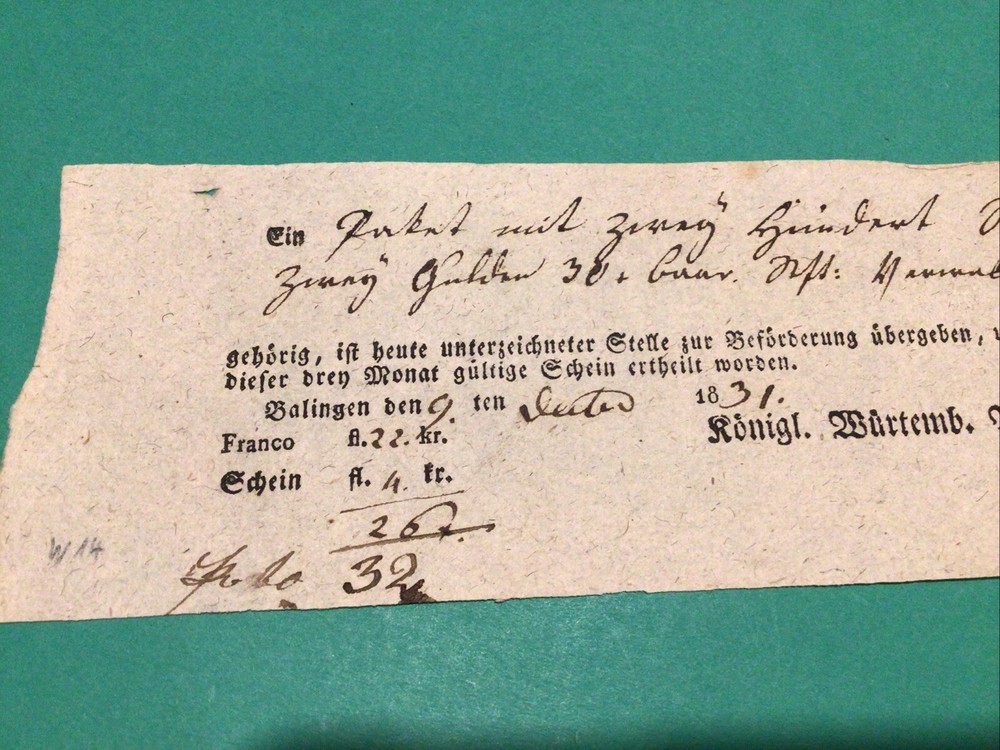 Ein Paket mit zwey Hundert
zwey Gulden 30 x baar. Verwal
gehörig, ist heute unterzeichneter Stelle zur Beförderung übergeben,
dieser drey Monat gültige Schein ertheilt worden.
Balingen den 9. ten 1831.
Franco fl. 22. kr.
Königl. Würtemb.
Schein fl. 4. kr.
26 x.
W 14
Porto 32